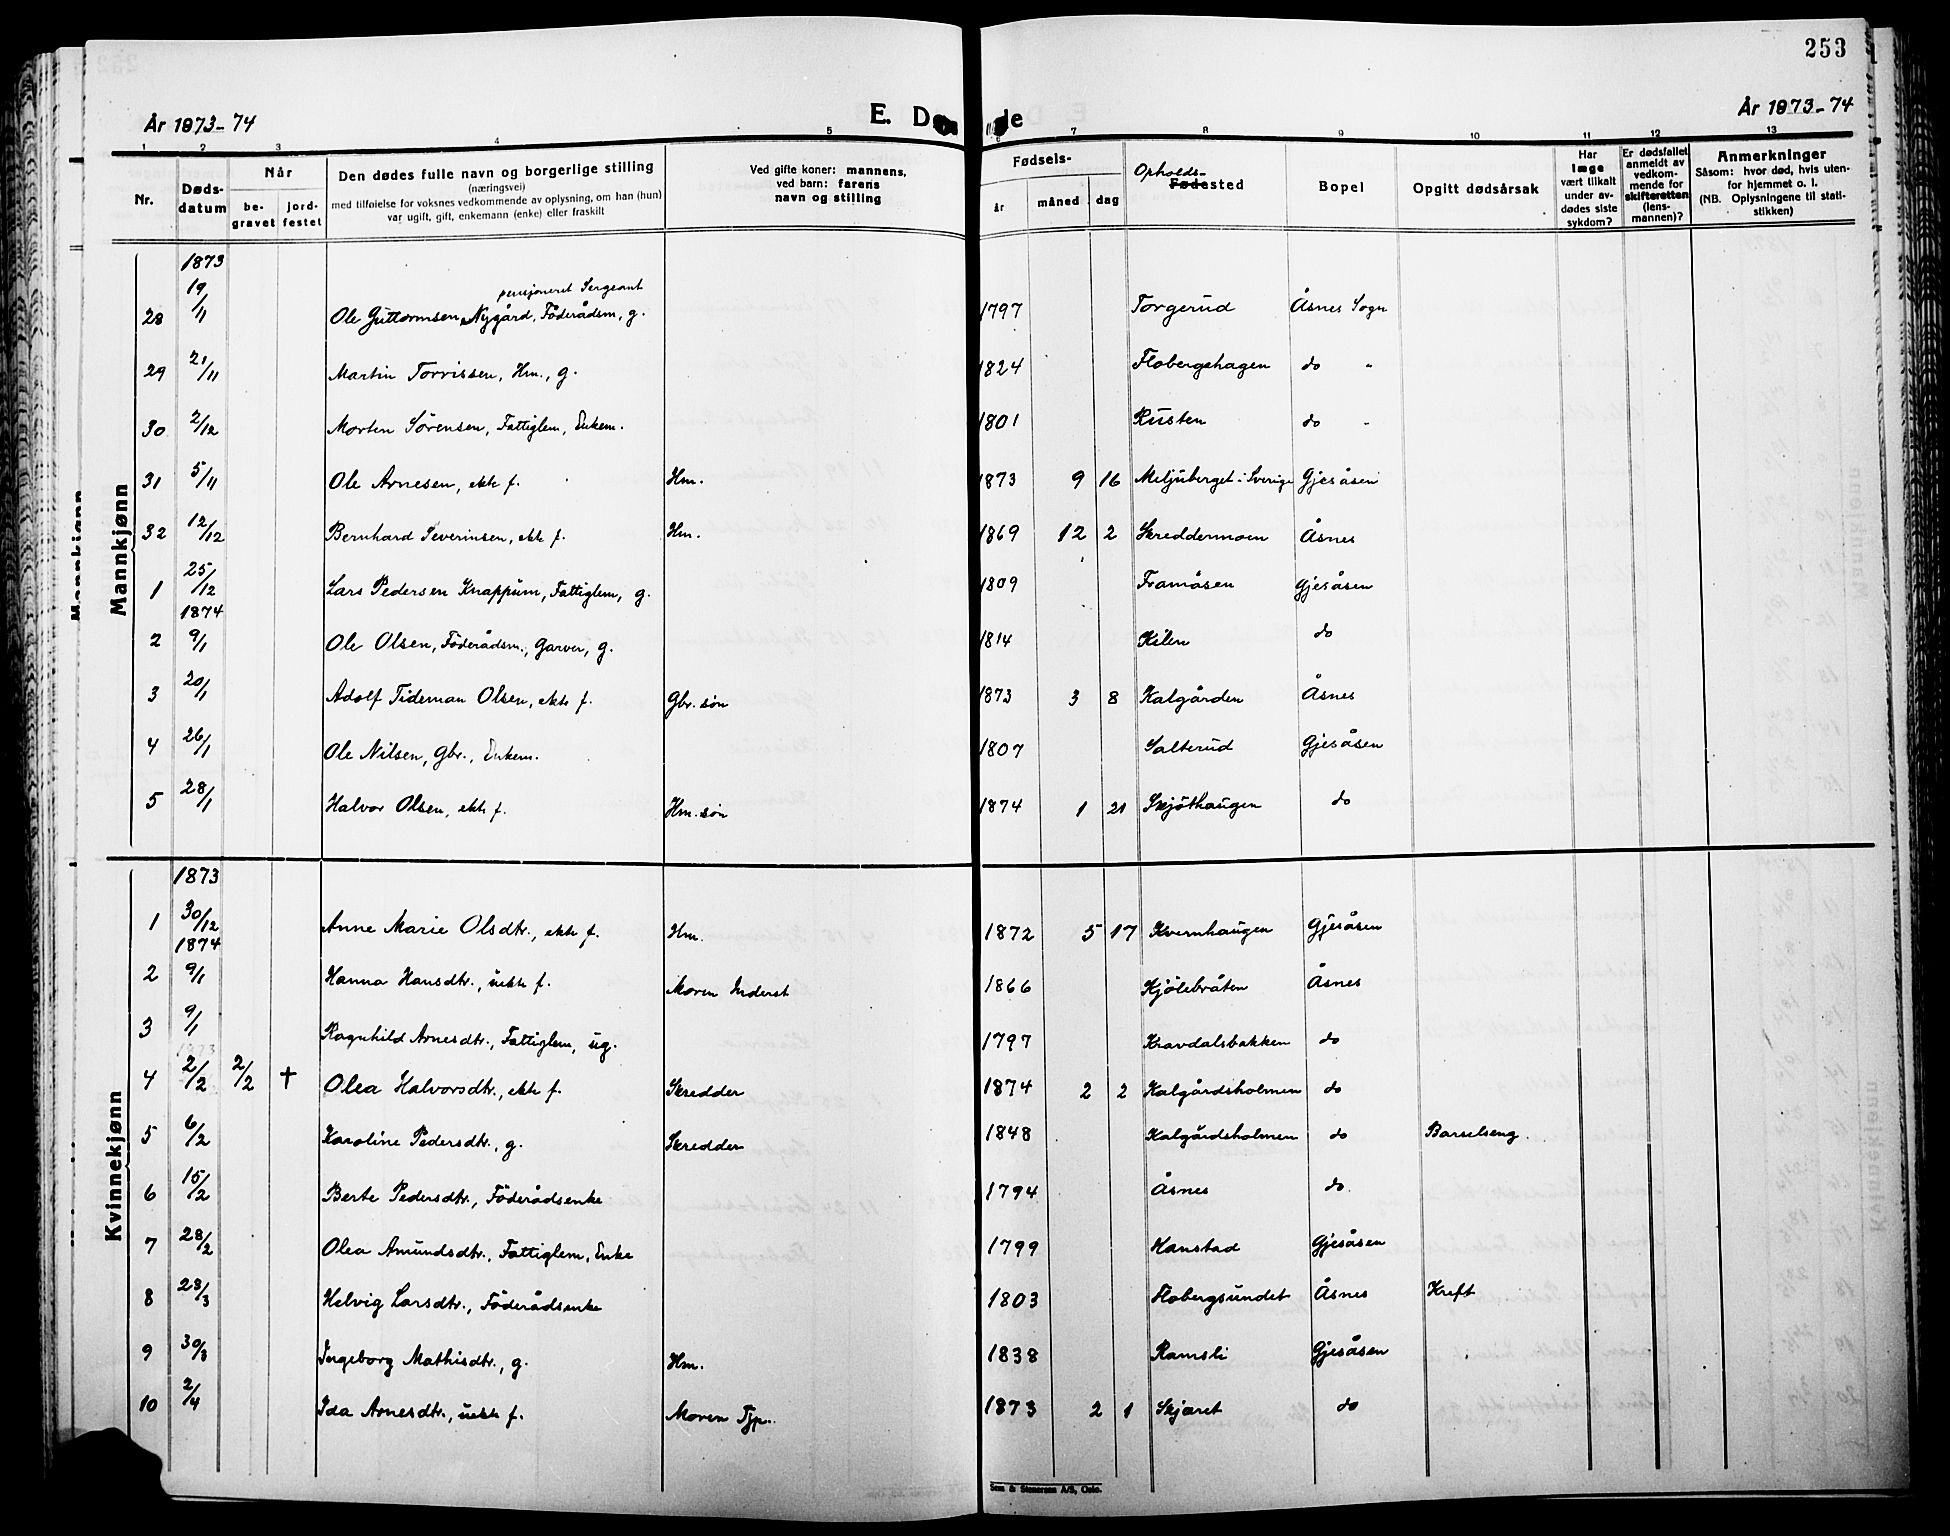 253
År 1873-74
E. Dø de
År 1873-74
1 2 3 4 5 6 7 8 9 10 11 12 13
Nr.
Døds-
datum
Når
be-
gravet
jord-
festet
Den dødes fulle navn og borgerlige stilling
(næringsvei)
med tilføielse for voksnes vedkommende av oplysning, om han (hun)
var ugift, gift, enkemann (enke) eller fraskilt
Ved gifte koner: mannens,
ved barn: farens
navn og stilling
Fødsels-
år
måned
dag
Opholds-
Fødested
Bopel
Opgitt dødsårsak
Har
læge
vært tilkalt
under av-
dødes siste
sykdom?
Er dødsfallet
anmeldt av
vedkom-
mende for
skifteretten
(lens-
mannen)?
Anmerkninger
Såsom: hvor død, hvis uten-
for hjemmet o. l.
(NB. Oplysningene til stati-
stikken)
Mannkjønn
1873
pensjoneret Sergeant
28 19/11 Ole Guttormsen Nygård, Föderådsm, g. 1797 Torgerud Åsnes Sogn
29 21/11 Martin Torvissen, Hm., g. 1824 Flobergshagen do "
30 2/12 Morten Sörensen, Fattiglem, Enkem. 1801 Rusten do "
31 5/11 Ole Arnesen, ekte f. Hm. 1873 9 16 Meljuberget i Sverige Gjesåsen
32 12/12 Bernhard Severinsen, ekte f. Hm. 1869 12 2 Skreddermoen Åsnes
1 25/12 Lars Pedersen Knappum, Fattiglem, g. 1809 Framåsen Gjesåsen
1874
2 9/1 Ole Olsen, Föderådsm., Garver, g. 1814 Kilen do
3 20/1 Adolf Tideman Olsen, ekte f. Gbr. søn 1873 3 8 Kalgården Åsnes
4 26/1 Ole Nilsen, Gbr., Enkem. 1807 Salterud Gjesåsen
5 28/1 Halvor Olsen, ekte f. Hm. søn 1874 1 21 Skjöthaugen do
Kvinnekjønn
1873
1 30/12 Anne Marie Olsdtr., ekte f. Hm. 1872 5 17 Kvernhaugen Gjesåsen
1874
2 9/1 Hanna Hansdtr., uekte f. Moren Inderst 1866 Kjölebråten Åsnes
3 9/1 Ragnhild Arnesdtr., Fattiglem, ug. 1797 Kravdalsbakken do
4 2/2 2/2 † Olea Halvorsdtr., ekte f. Skredder 1874 2 2 Kalgårdsholmen do
5 6/2 Karoline Pedersdtr., g. Skredder 1848 Kalgårdsholmen do Barselseng.
6 15/2 Berte Pedersdtr., Föderådsenke 1794 Åsnes do
7 28/2 Olea Amundsdtr., Fattiglem, Enke 1799 Hanstad Gjesåsen
8 28/3 Helvig Larsdtr., Föderådsenke 1803 Flobergsundet Åsnes Kreft
9 30/3 Ingeborg Mathisdtr., g. Hm. 1838 Ramsli Gjesåsen
10 2/4 Ida Arnesdtr., uekte f. Moren Tjp. 1873 2 1 Skjæret do
Sem & Stenersen A/S, Oslo.